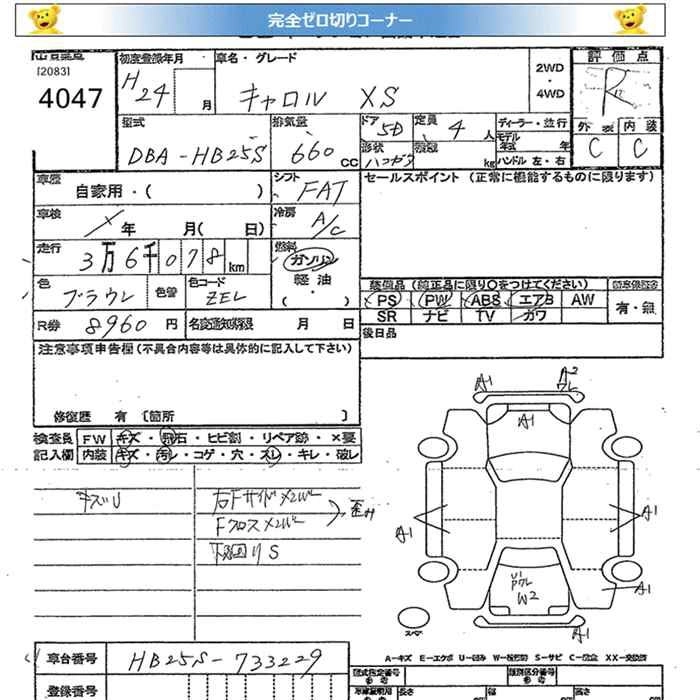 完全ゼロ切りコーナー
[2083]
4047
初度登録年月
H24 月
車名・グレード
キャロル XS
2WD
・
4WD
評価点
R
外装 内装
C C
型式
DBA-HB25S
排気量
660 CC
ドア
5D
定員
4人
形状
ディーラー・並行
モデル年式 年
ハンドル 左・右
kg
車歴
自家用・( )
シフト
FAT
セールスポイント (正常に機能するものに限ります)
車検
年 月( 日)
冷房
A/C
走行
3万6千078km
燃料
ガソリン
軽油
( ・ )
色
ブラウン
色替
色コード
ZEL
装備品 (純正品に限り○をつけてください)
PS PW ABS エアB AW
SR ナビ TV カワ
有・無
R券 8960円
名変通知期限 月 日
後日品
注意事項申告欄(不具合内容等は具体的に記入して下さい)
修復歴 有 [箇所 ]
検査員 FW キズ・飛石・ヒビ割・リペア跡・×要
記入欄 内装 キズ・汚レ・コゲ・穴・スレ・キレ・破レ
キズU
右Fサイドメンバー
Fクロスメンバー
歪み
下廻りS
A1
A2
ワレ
A1
A1
A1
A1
U1
W2
A1
スペア
A-キズ E-エクボ U-凹み W-補修跡 S-サビ C-腐食 XX-交換済
車台番号 HB25S-733229
登録番号
型式指定番号
類別区分番号
長さ
幅
高さ